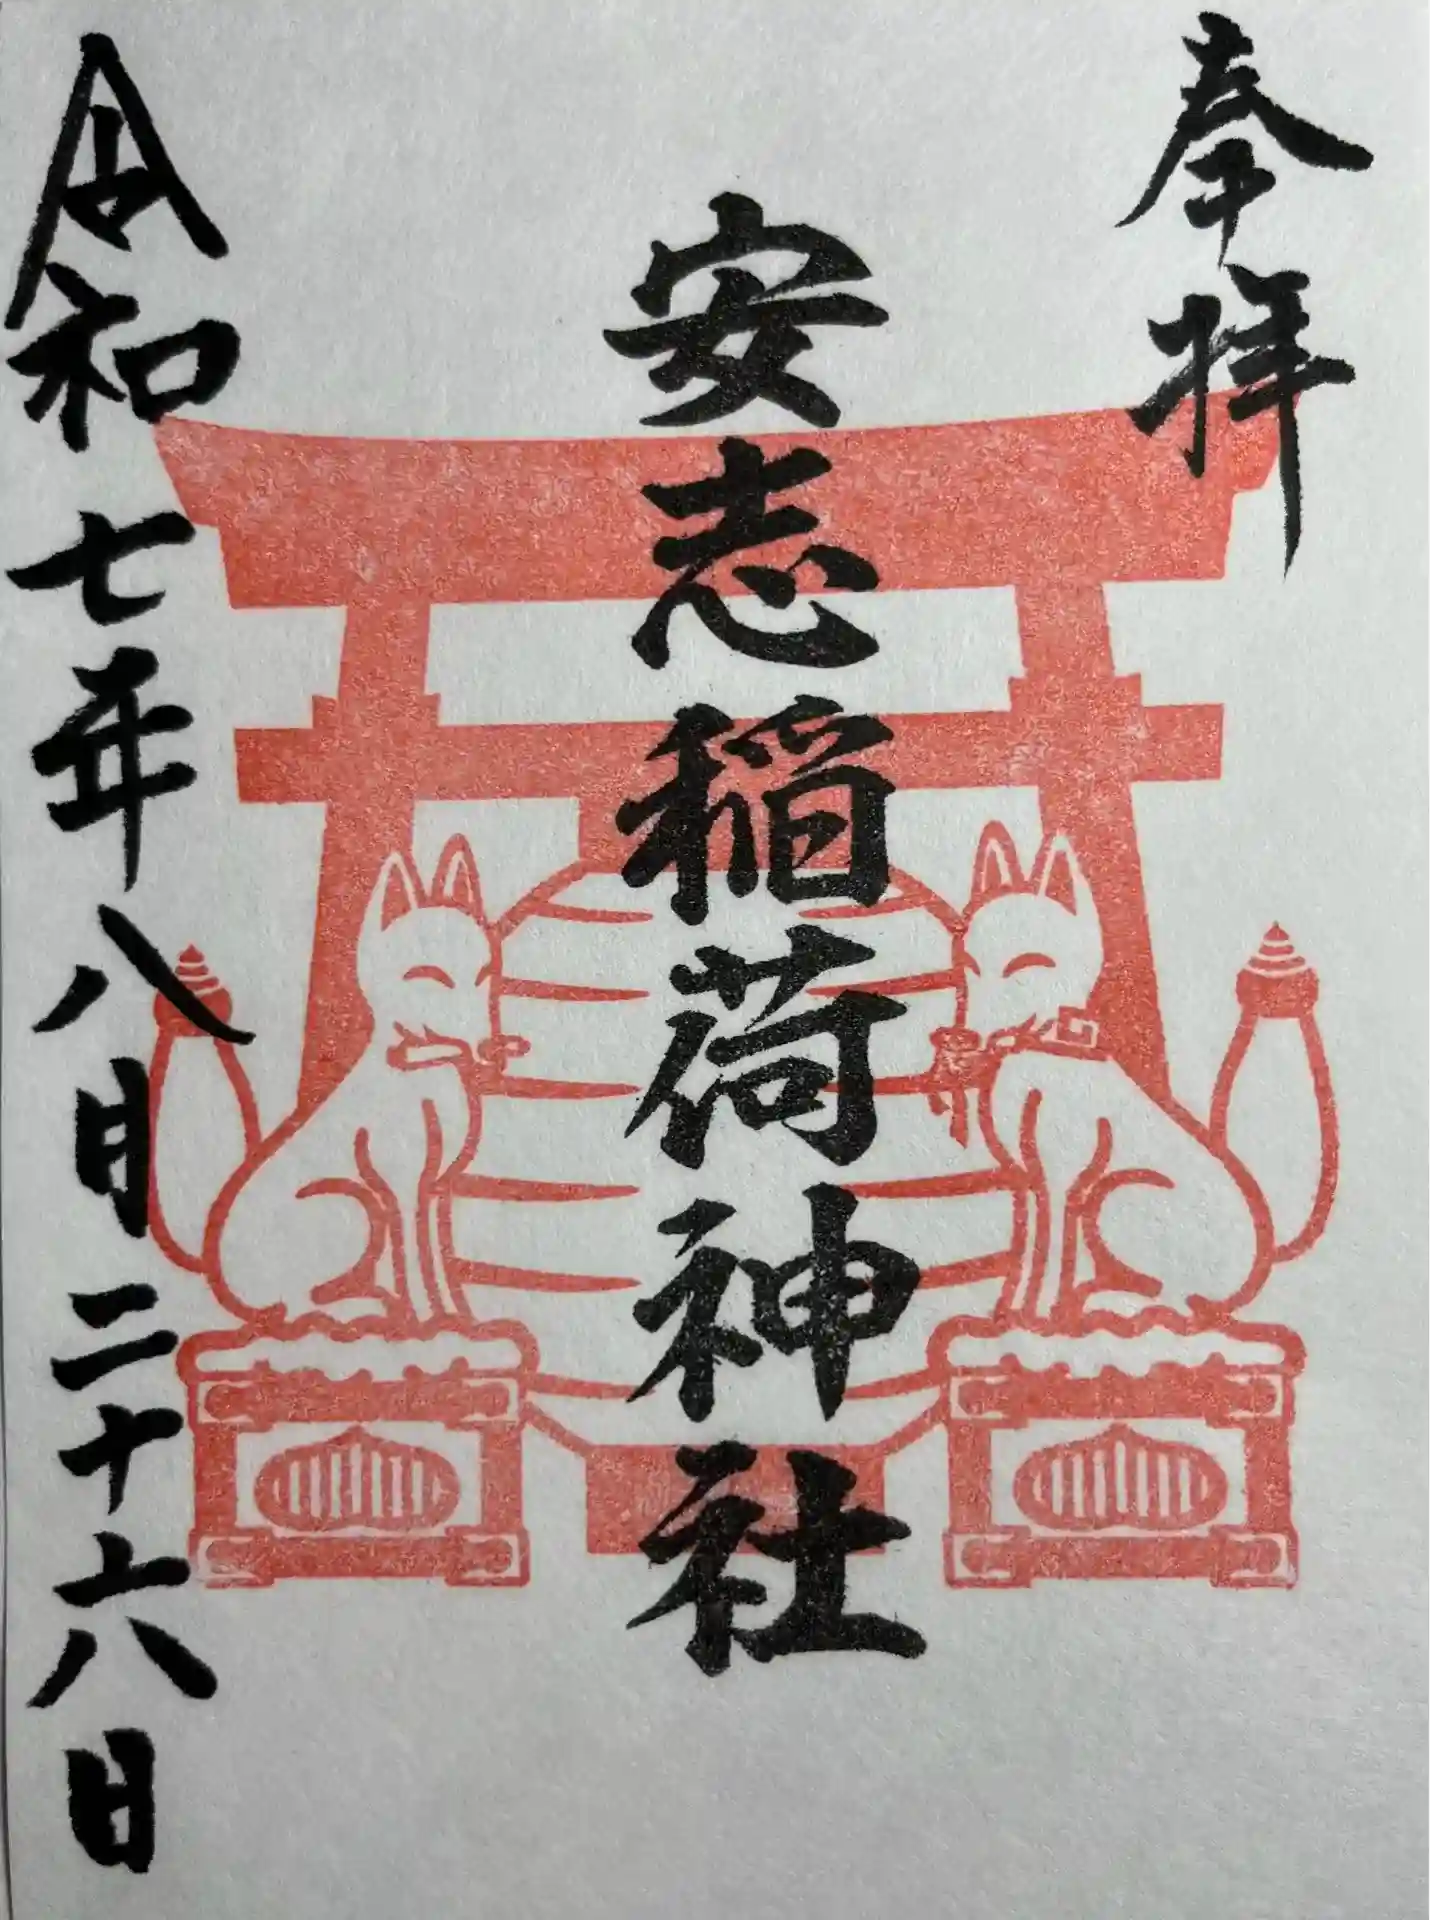 奉拝
安志稲荷神社
令和七年八月二十六日